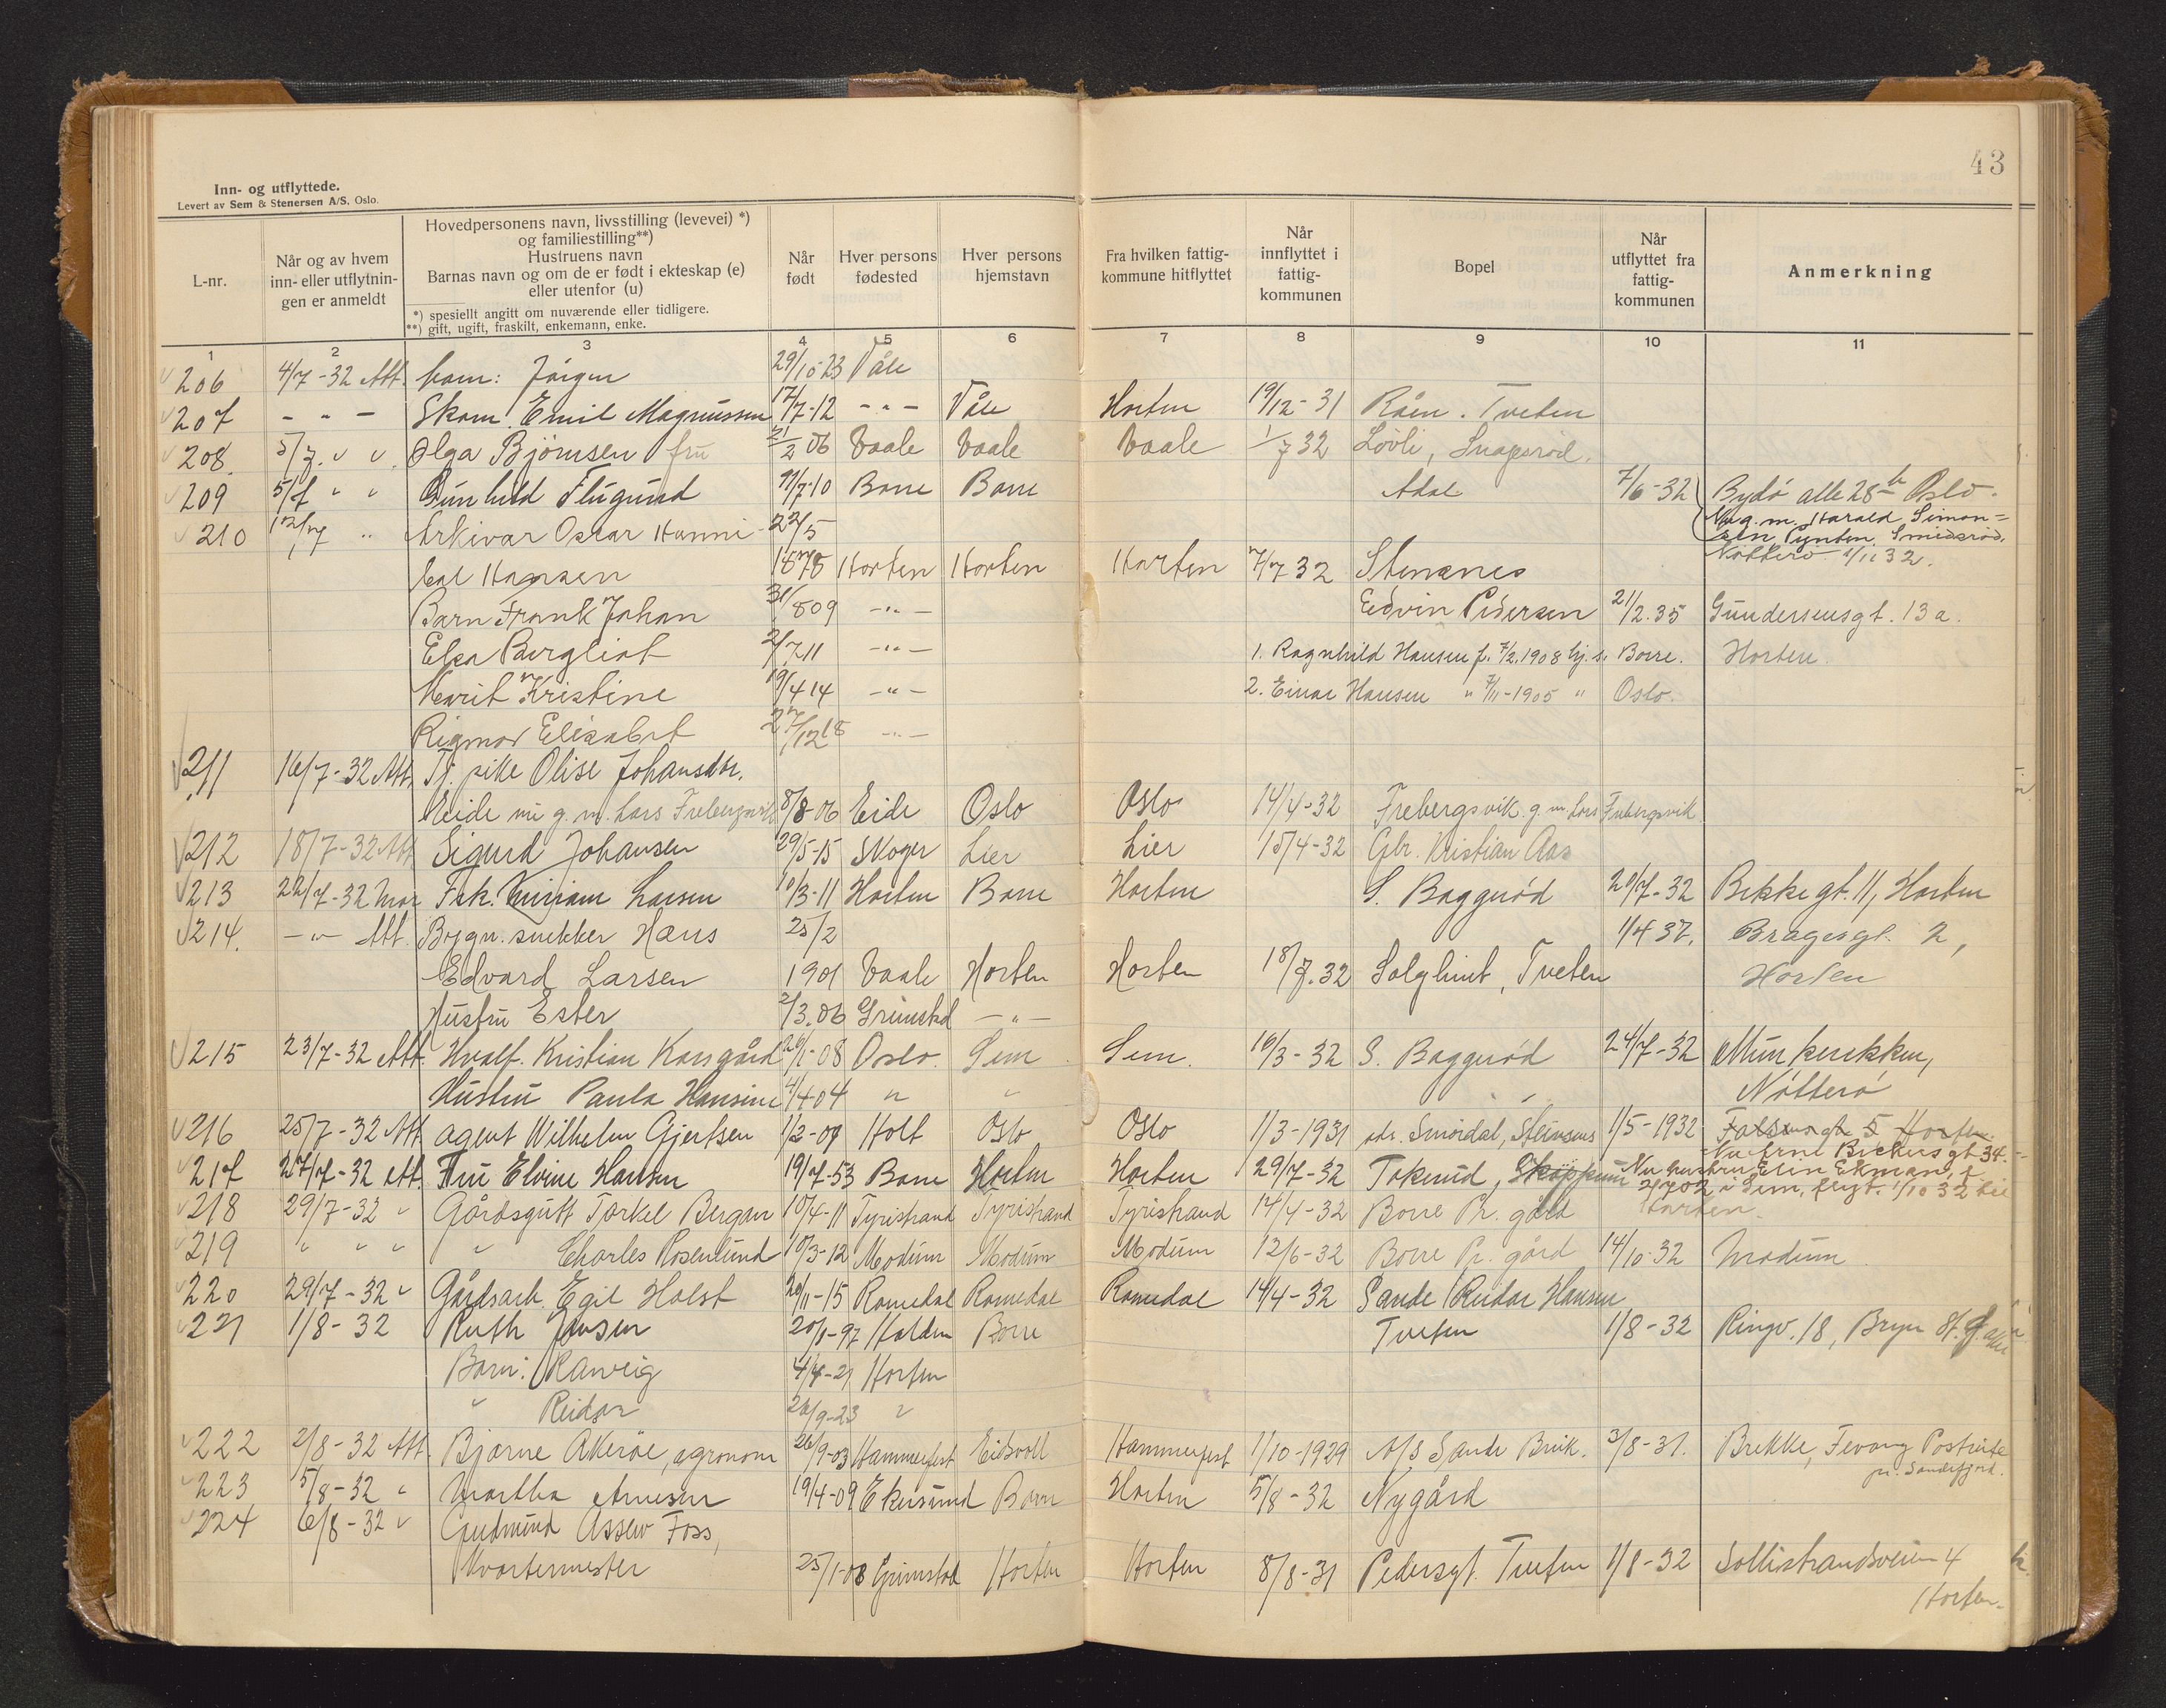 43
Inn- og utflyttede.
Levert av Sem & Stenersen A/S. Oslo.
L-nr.
Når og av hvem inn- eller utflytningen er anmeldt
Hovedpersonens navn, livsstilling (levevei) *)
og familiestilling**)
Hustruens navn
Barnas navn og om de er født i ekteskap (e)
eller utenfor (u)
*) spesiellt angitt om nuværende eller tidligere.
**) gift, ugift, fraskilt, enkemann, enke.
Når født
Hver persons fødested
Hver persons hjemstavn
Fra hvilken fattigkommune hitflyttet
Når innflyttet i fattigkommunen
Bopel
Når utflyttet fra fattigkommunen
Anmerkning
1 2 3 4 5 6 7 8 9 10 11
206 4/7-32 Att. barn: Jörgen 29/10-23 Våle
207 - " - Skom. Emil Magnussen 17/7-12 - " - Våle Horten 19/12-31 Råen. Tveten
208. 5/7. " " Olga Björnsen fru 21/2 06 Vaale Vaale Vaale 1/7 32 Lövli, Snapsröd.
209 5/7 " " Gunhild Flugund 7-10 Borre Borre Adal 7/6-32 Bydö alle 28 b Oslo.
Nu g. m. Harald Simonsen, Pynten, Smidsröd, Nötterö 1/11 32.
210 12/7 " Arkivar Oscar Hanni- 22/5
bal Hansen 1878 Horten Horten Horten 7/7 32 Stensnes
Barn Frank Johan 31/8 09 - " - Edvin Pedersen 21/2.35 Gundersensgt. 13 a.
Elsa Bergliot 2/7 11 - " - 1. Ragnhild Hansen f. 7/2.1908 hj. s. Borre. Horten.
Marit Kristine 19/4 14 - " - 2. Einar Hansen " 7/11-1905 " Oslo.
Rigmor Elisabet 27/12 18 - " -
211 16/7-32 Att. Tj. pike Olise Johansdtr.
Eide nu g. m. Lars Frebergsvik 8/8-06 Eide Oslo Oslo 14/4-32 Frebergsvik g. m. Lars Frebergsvik
212 18/7-32 Att Sigurd Johansen 29/5-15 Skoger Lier Lier 15/4-32 Gbr. Kristian Aas
213 22/7-32 Mor Frk. Mirjam Larsen 10/3-11 Horten Borre Horten S. Baggeröd 20/7-32 Bekkegt. 11, Horten
214. - " - Att. Bygn. snekker Hans 25/2 1/4 37. Bragesgt. 2,
Edvard Larsen 1901 Vaale Horten Horten 18/7.32 Solglimt, Tveten Horten
Hustru Ester 2/3.06 Grimstad - " -
215 23/7-32 Att. Hvalf. Kristian Korsgård 26/1-08 Oslo. Sem Sem. 16/3-32 S. Baggeröd 24/7-32 Munkerekken,
Hustru Paula Hansine 4/4-04 " " " Nötterö
216 25/7-32 Att. agent Wilhelm Gjertsen 1/2-09 Holt Oslo Oslo 1/3-1931 adr. Smördal, Stensnes 1/5-1932 Falsens gt. 5 Horten.
Nu Arne Biekers gt 34.
217 27/7-32 Att. Fru Elvine Hansen 19/7-53 Borre Horten Horten 29/7-32 Tokerud, Skoppum Nu hustru Elin Ekman, f. 2/7 02 i Sem, flyt. 1/10 32 til Horten.
218 29/7-32 " Gårdsgutt Torkel Bergan 10/4-11 Tyristrand Tyristrand Tyristrand 14/4-32 Borre Pr. gård
219 " " " " Charles Rosenlund 10/3-12 Modum Modum Modum 12/6-32 Borre Pr. gård 14/10-32 Modum
220 29/7-32 " Gårdsarb. Egil Holst 20/11-15 Romedal Romedal Romedal 14/4-32 Sande (Reidar Hansen
221 1/8-32 Ruth Jensen 20/1-97 Halden Borre Tveten 1/8-32 Ringv. 18, Bryn St.
Barn: Ranveig 4/4-21 Horten
" Reidar 26/9-23 "
222 2/8-32 Att. Bjarne Akeröe, agronom 26/9-03 Hammerfest Eidsvoll Hammerfest 1/10-1929 A/S Sande Bruk. 3/8-31. Brekke, Fevang Postrute
pr. Sandefjord.
223 5/8-32 " Martha Arnesen 19/4-09 Ekersund Borre Horten 5/8-32 Nygård
224 6/8-32 " Gudmund Assev Foss,
Kvartermester 25/1-08 Grimstad Horten Horten 8/8-31 Pedersgt. Tveten 1/8-32 Sollistrandsveien 4
Horten.